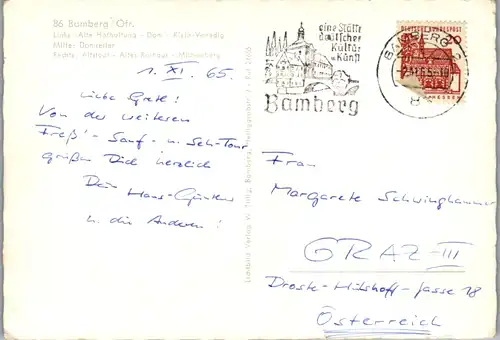 86 Bamberg/Ofr.
Links: Alte Hofhaltung - Dom - Klein-Venedig
Mitte: Domreiter
Rechts: Altstadt - Altes Rathaus - Michaelsberg
1. XI. 65.
Liebe Grete!
Von der weiteren
Freß'- Sauf- u. Seh-Tour
grüßen Dich herzlich
Dein Hans-Günther
u. die Anderen!
eine Stätte
deutscher
Kultur
u. Kunst
Bamberg
BAMBERG
20
DEUTSCHE BUNDESPOST
Frau
Margarete Schwinghammer
GRAZ-III
Droste-Hülshoff-Gasse 18
Österreich